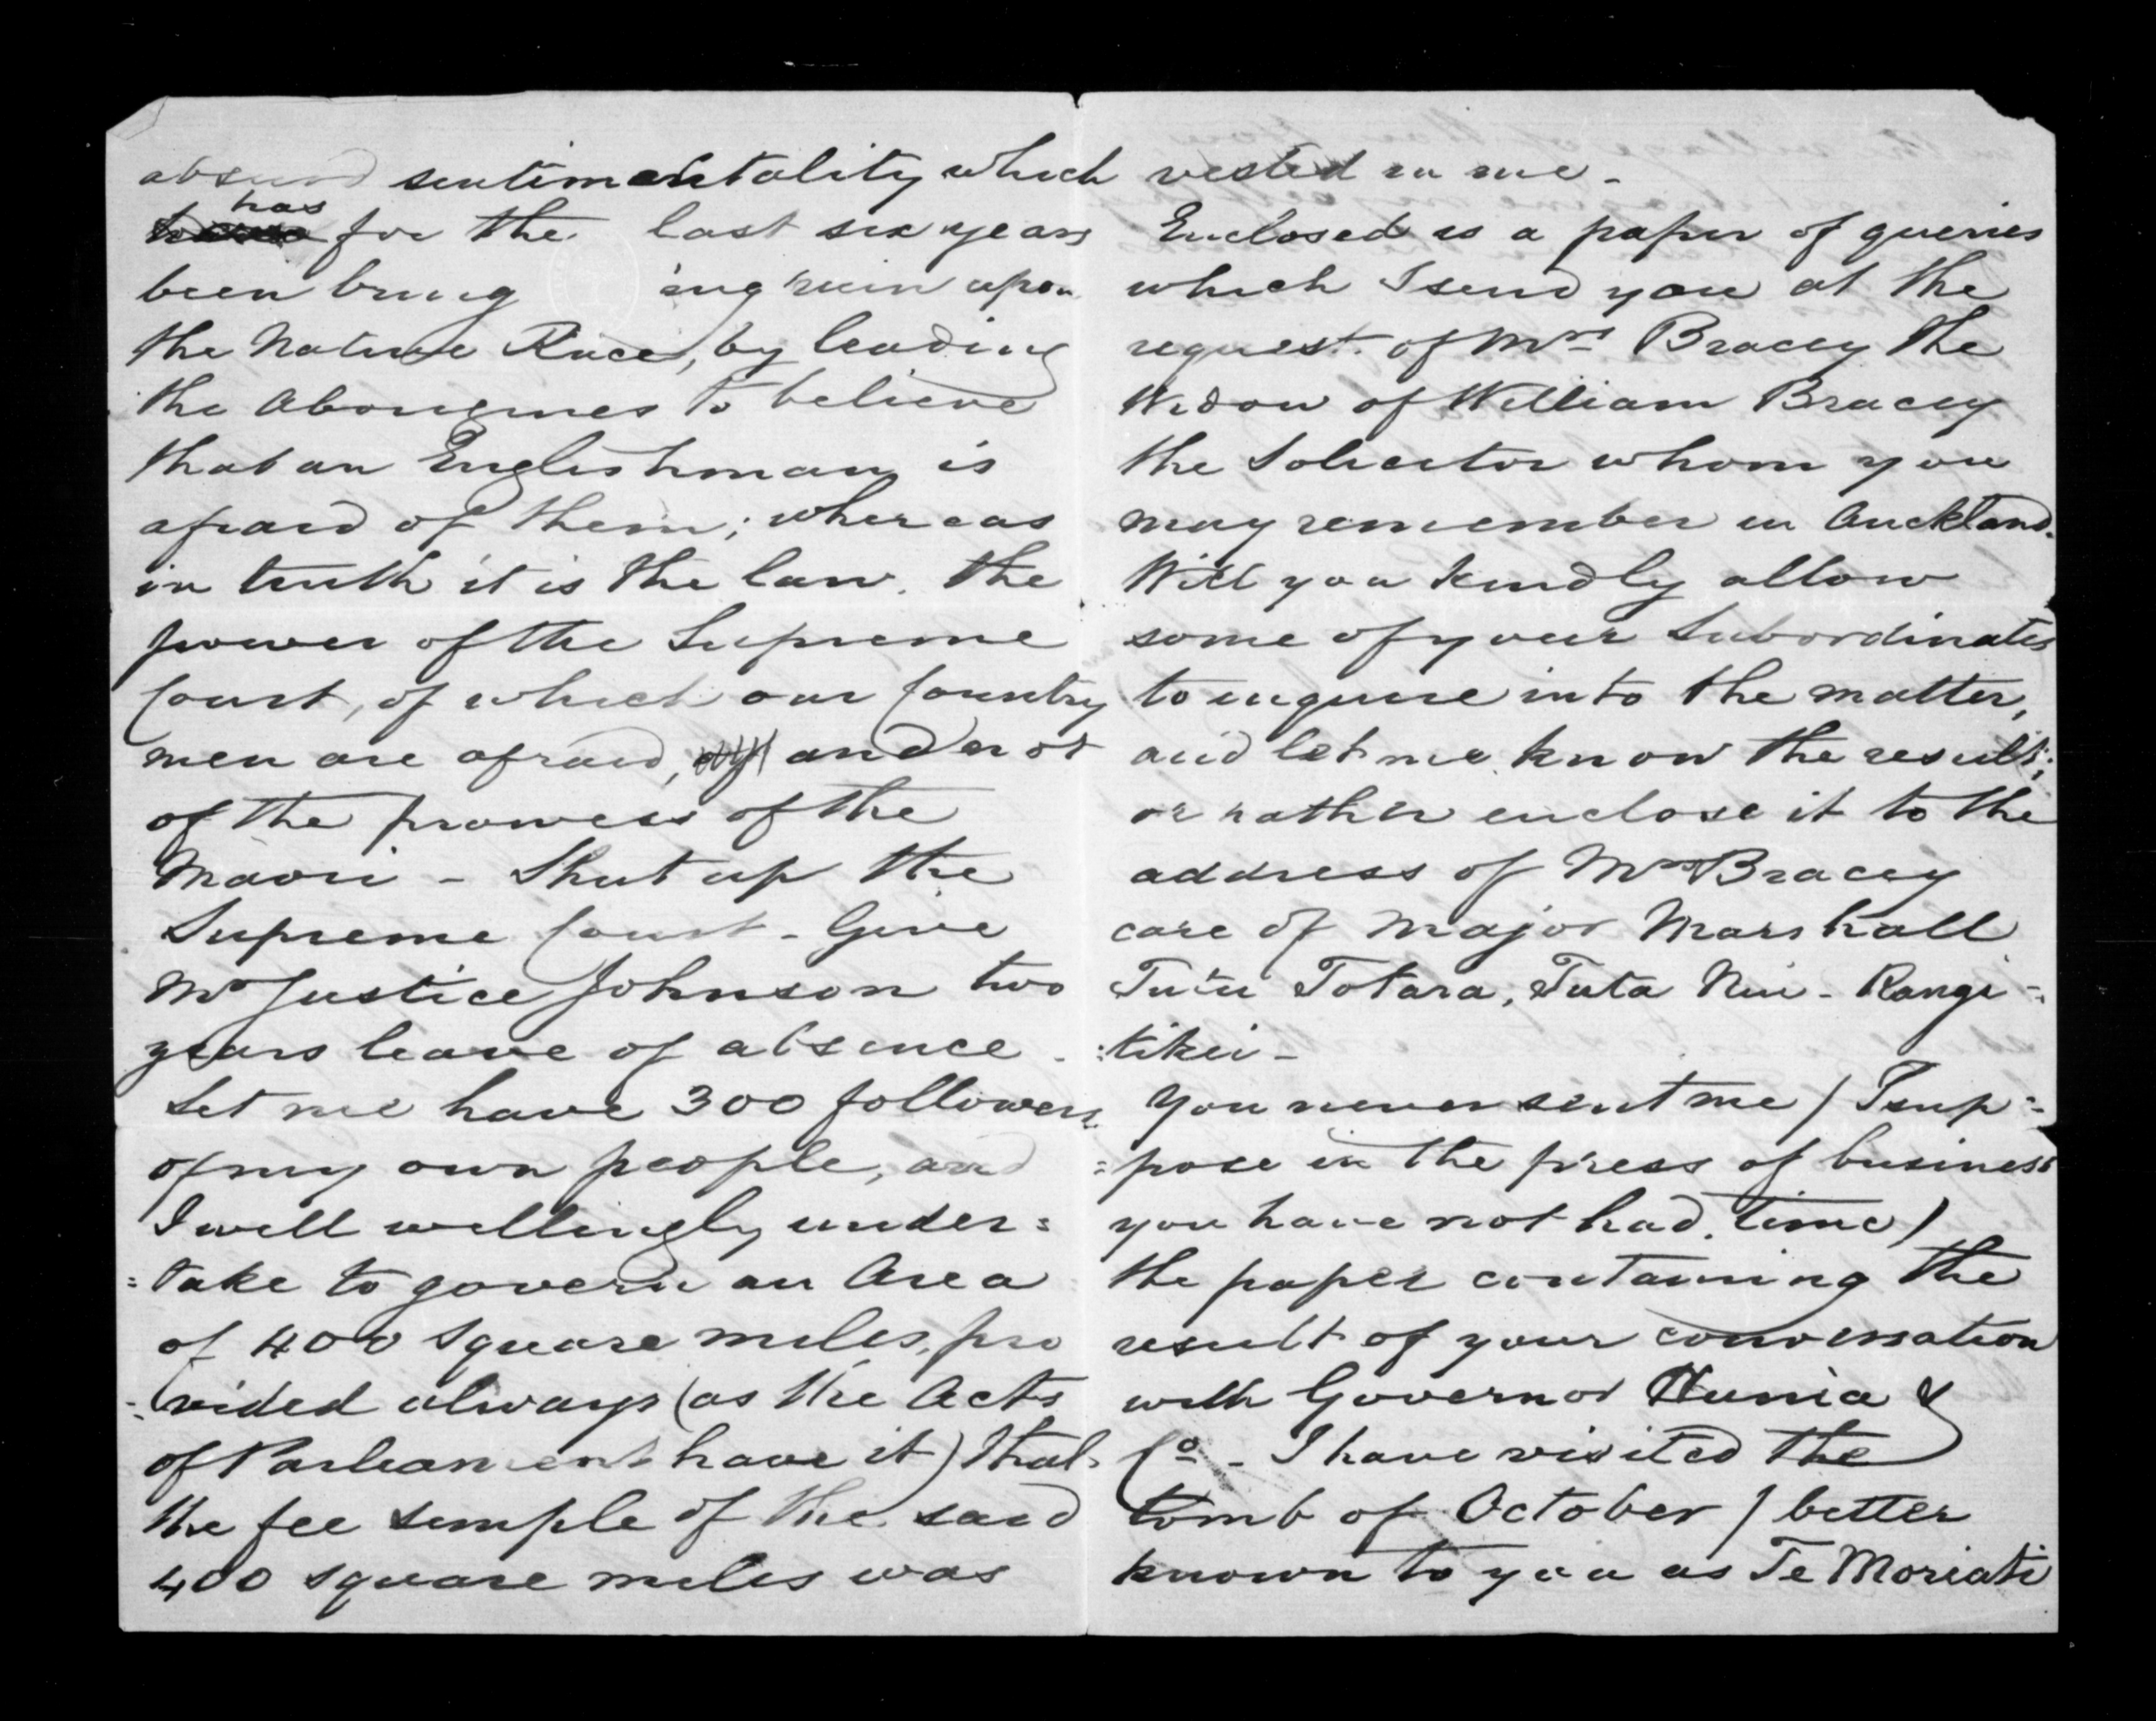 absurd sentimentality which
has for the last six years
been bring ing ruin upon
the Native Race, by leading
the Aborigines to believe
that an Englishman is
afraid of them; whereas
in truth it is the law. the
power of the Supreme
Court, of which our Country
men are afraid, and not
of the prowess of the
Maori - Shut up the
Supreme Court - Give
Mr Justice Johnson two
years leave of absence -
Let me have 300 followers
of my own people, and
I will willingly under=
=take to govern an Area
of 400 square miles, pro
=vided always (as the Acts
of Parliament have it) that
the fee simple of the said
400 square miles was
vested in me -
Enclosed is a paper of queries
which I send you at the
request of Mrs Bracey the
Widow of William Bracey
the Solicitor whom you
may remember in Auckland.
Will you kindly allow
some of your Subordinates
to inquire into the matter,
and let me know the result;
or rather enclose it to the
address of Mrs Bracey
care of Major Marshall
Tutu Totara, Tuta Nui - Rangi=
=tikei -
You never sent me (I sup=
=pose in the press of business
you have not had time)
the paper containing the
result of your conversation
with Governor Hunia &
Co - I have visited the
tomb of October (better
known to you as Te Moriati